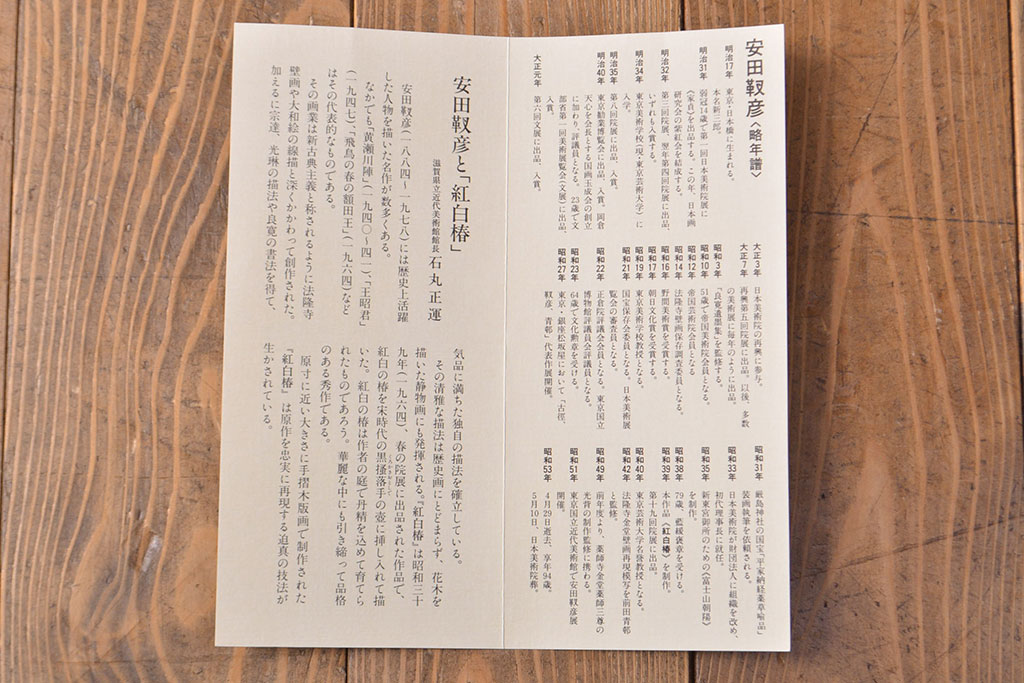 安田靫彦〈略年譜〉
明治17年
東京・日本橋に生まれる。
本名新三郎。
明治31年
弱冠14歳で第一回日本美術院展に
〈家貞〉を出品する。この年、日本画
研究会の紫紅会を結成する。
明治32年
第三回院展、翌年第四回院展に出品、
いずれも入賞する。
明治34年
東京美術学校(現・東京芸術大学)に
入学。
明治35年
第八回院展に出品、入賞。
明治40年
東京勧業博覧会に出品、入賞。岡倉
天心を会長とする国画玉成会の創立
に加わり、評議員となる。23歳で文
部省第一回美術展覧会(文展)に出品、
入賞。
大正元年
第六回文展に出品、入賞。
大正3年
日本美術院の再興に参与。
大正7年
再興第五回院展に出品。以後、多数
の美術展に毎年のように出品。
昭和3年
『良寛遺墨集』を監修する。
昭和10年
51歳で帝国美術院会員となる。
昭和12年
帝国芸術院会員となる。
昭和14年
法隆寺壁画保存調査委員となる。
昭和16年
野間美術賞を受賞する。
昭和17年
朝日文化賞を受賞する。
昭和19年
東京美術学校教授となる。
昭和21年
国宝保存会委員となる。日本美術展
覧会の審査員となる。
昭和22年
正倉院評議会会員となる。東京国立
博物館評議員会評議員となる。
昭和23年
64歳で文化勲章を受ける。
昭和27年
東京・銀座松坂屋において「古径、
靫彦、青邨」代表作展開催。
昭和31年
厳島神社の国宝「平家納経薬草喩品」
装画執筆を依頼される。
昭和33年
日本美術院が財団法人に組織を改め、
初代理事長に就任。
昭和35年
新東宮御所のための〈富士山朝陽〉
を制作。
昭和38年
79歳、藍綬褒章を受ける。
昭和39年
本作品〈紅白椿〉を制作。
第十九回院展に出品。
昭和40年
東京芸術大学名誉教授となる。
昭和42年
法隆寺金堂壁画再現模写を前田青邨
と監修。
昭和49年
前年度より、薬師寺金堂薬師三尊の
光背の制作監修に携わる。
昭和51年
東京国立近代美術館で安田靫彦展
開催。
昭和53年
4月29日逝去、享年94歳。
5月10日、日本美術院葬。
安田靫彦と「紅白椿」
滋賀県立近代美術館館長 石丸正運
安田靫彦(一八八四〜一九七八)には歴史上活躍
した人物を描いた名作が数多くある。
なかでも「黄瀬川陣」(一九四〇〜四一)、「王昭君」
(一九四七)、「飛鳥の春の額田王」(一九六四)など
はその代表的なものである。
その画業は新古典主義と称されるように法隆寺
壁画や大和絵の線描と深くかかわって創作された。
加えるに宗達、光琳の描法や良寛の書法を得て、
気品に満ちた独自の描法を確立している。
その清雅な描法は歴史画にとどまらず、花木を
描いた静物画にも発揮される。『紅白椿』は昭和三十
九年(一九六四)、春の院展に出品された作品で、
紅白の椿を宋時代の黒掻落手の壺に挿し入れて描
いた。紅白の椿は作者の庭で丹精を込めて育てら
れたものであろう。華麗な中にも引き締って品格
のある秀作である。
原寸に近い大きさに手摺木版画で制作された
『紅白椿』は原作を忠実に再現する迫真の技法が
生かされている。